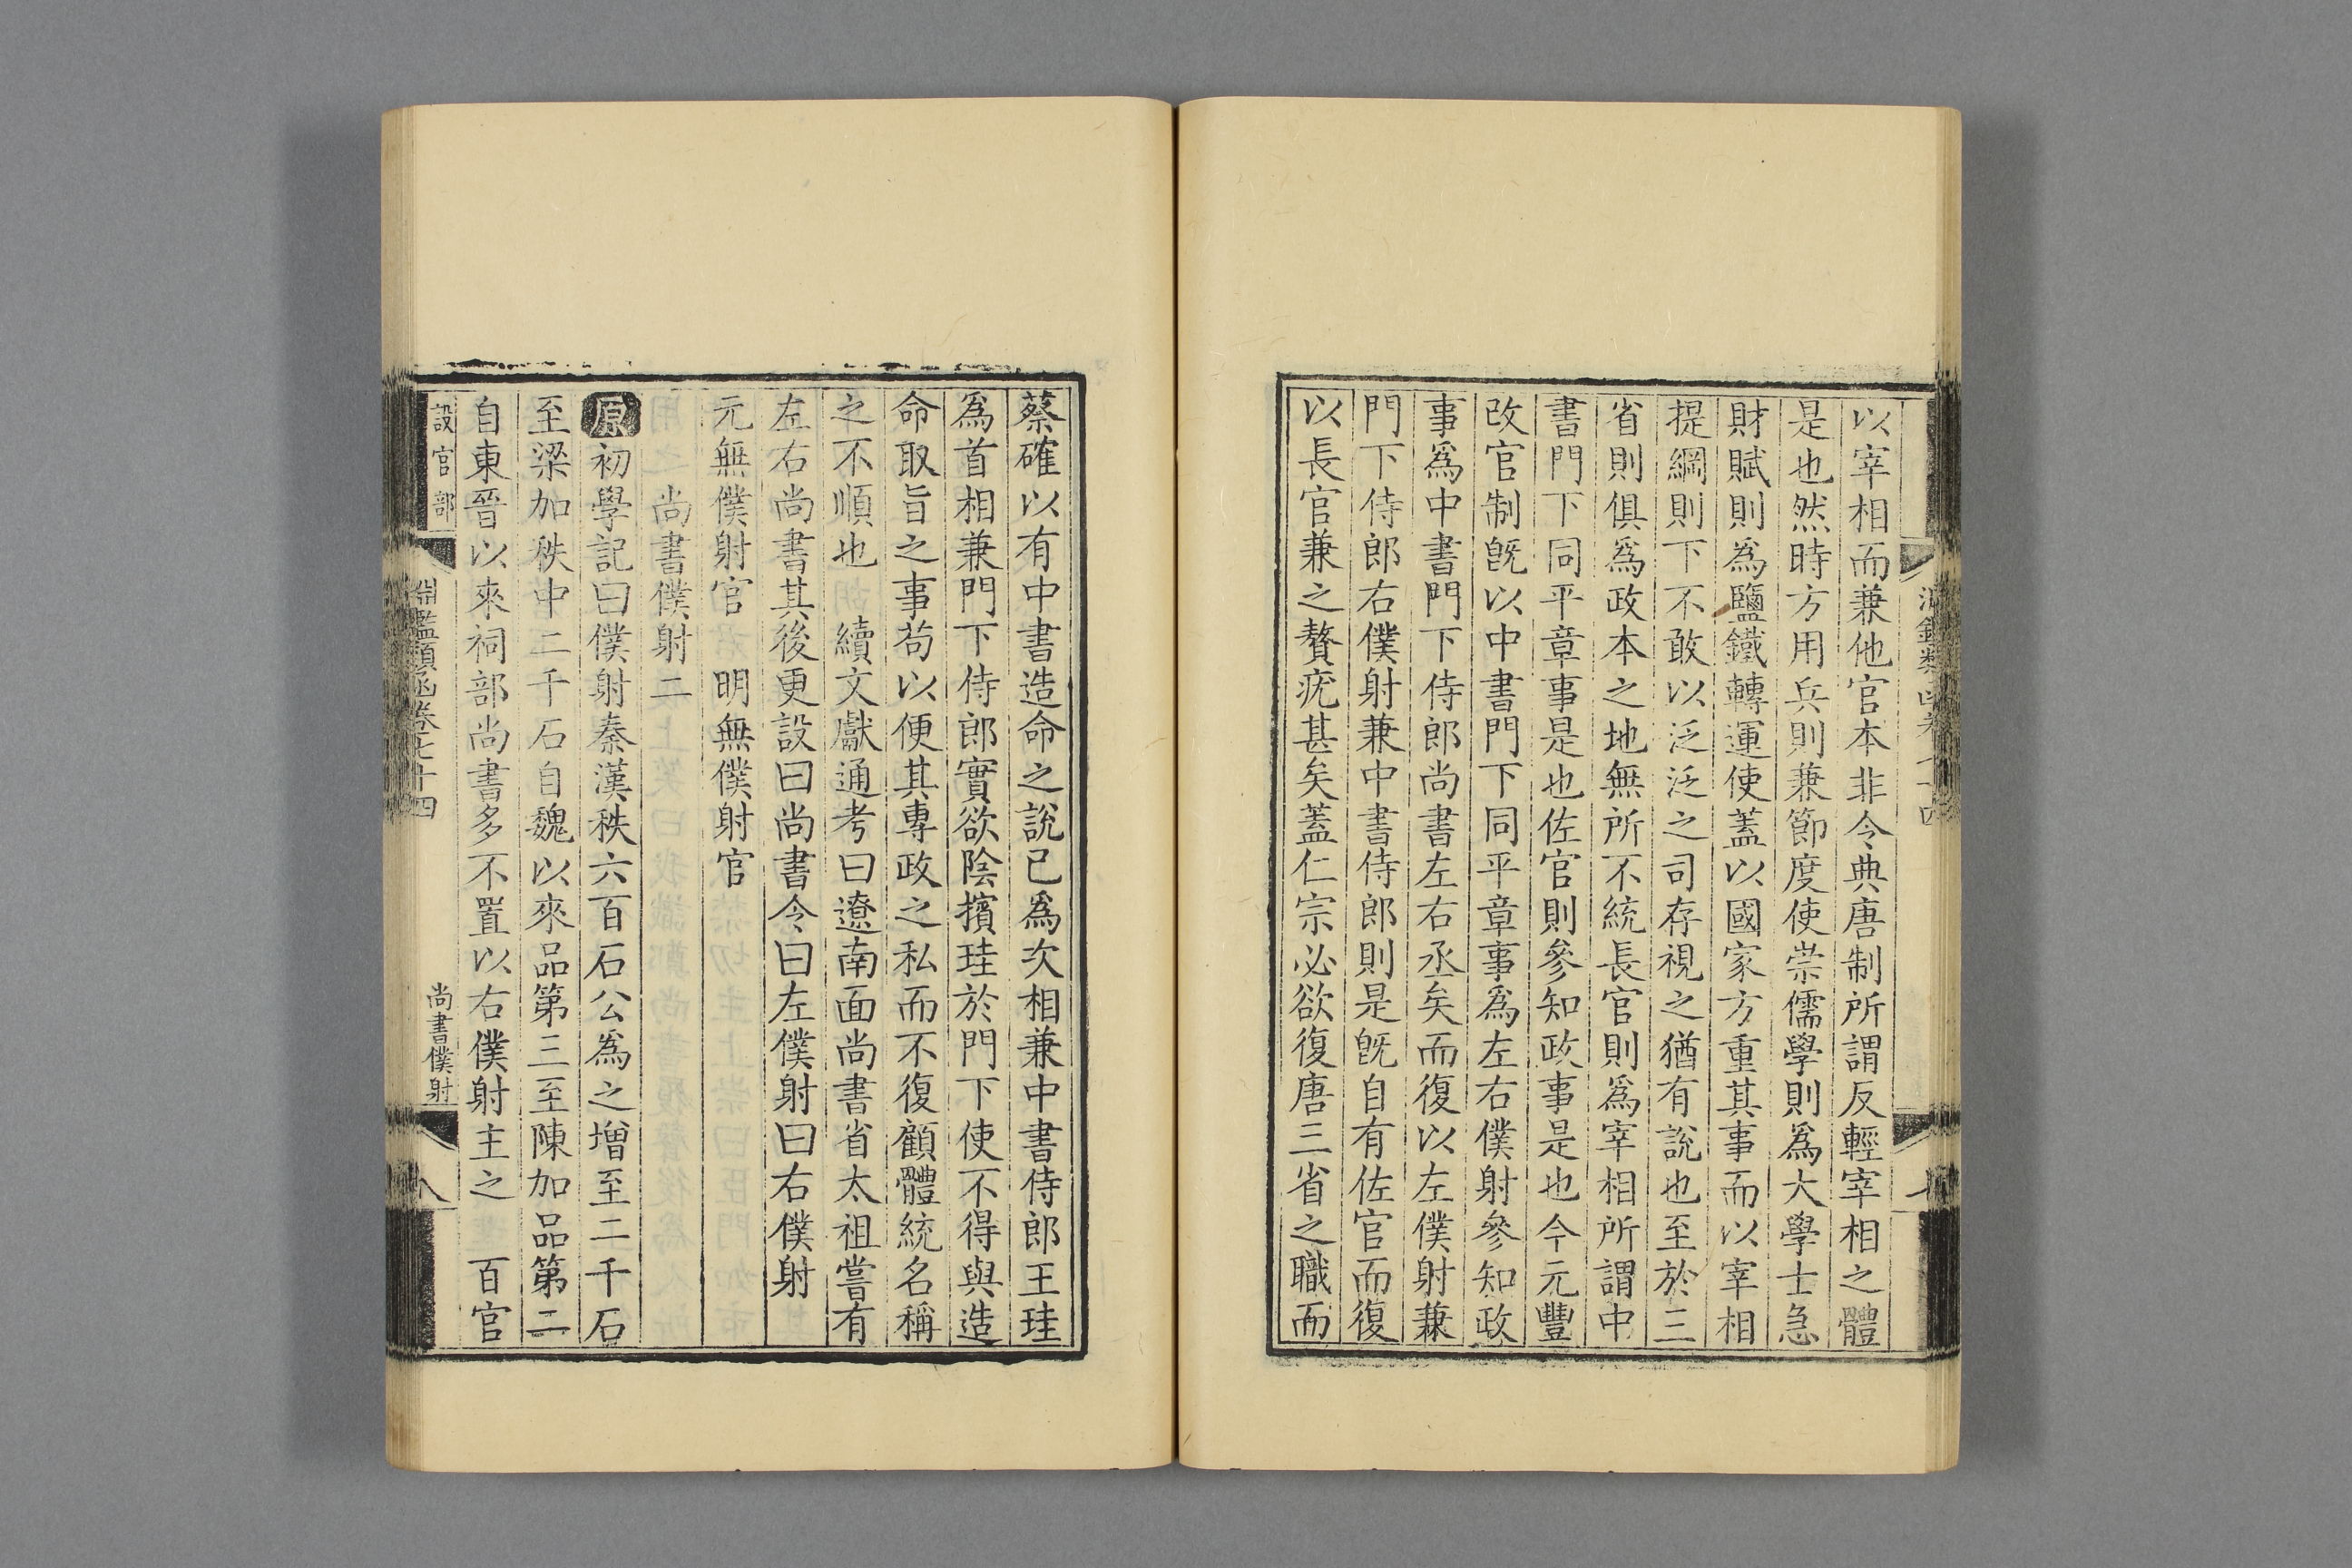 以宰相而兼他官本非令典唐制所謂反輕宰相之體
是也然時方用兵則兼節度使崇儒學則爲大學士急
財賦則爲鹽鐵轉運使蓋以國家方重其事而以宰相
提綱則下不敢以泛泛之司存視之猶有說也至於三
省則俱爲政本之地無所不統長官則爲宰相所謂中
書門下同平章事是也佐官則參知政事是也今元豐
改官制旣以中書門下同平章事爲左右僕射參知政
事爲中書門下侍郎尚書左右丞矣而復以左僕射兼
門下侍郎右僕射兼中書侍郎則是旣自有佐官而復
以長官兼之贅疣甚矣蓋仁宗必欲復唐三省之職而
蔡確以有中書造命之說已爲次相兼中書侍郎王珪
爲首相兼門下侍郎實欲陰擯珪於門下使不得與造
命取旨之事苟以便其專政之私而不復顧體統名稱
之不順也 續文獻通考曰遼南面尚書省太祖嘗有
左右尚書其後更設曰尚書令曰左僕射曰右僕射
元無僕射官 明無僕射官
尚書僕射二
原初學記曰僕射秦漢秩六百石公爲之增至二千石
至梁加秩中二千石自魏以來品第三至陳加品第二
自東晉以來祠部尚書多不置以右僕射主之 百官
設官部 淵鑑類函卷七十四 尚書僕射 八